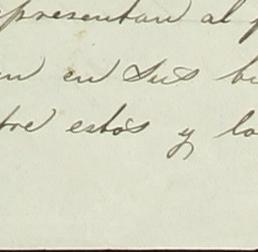 representan al
en en sus
tre estos y lo